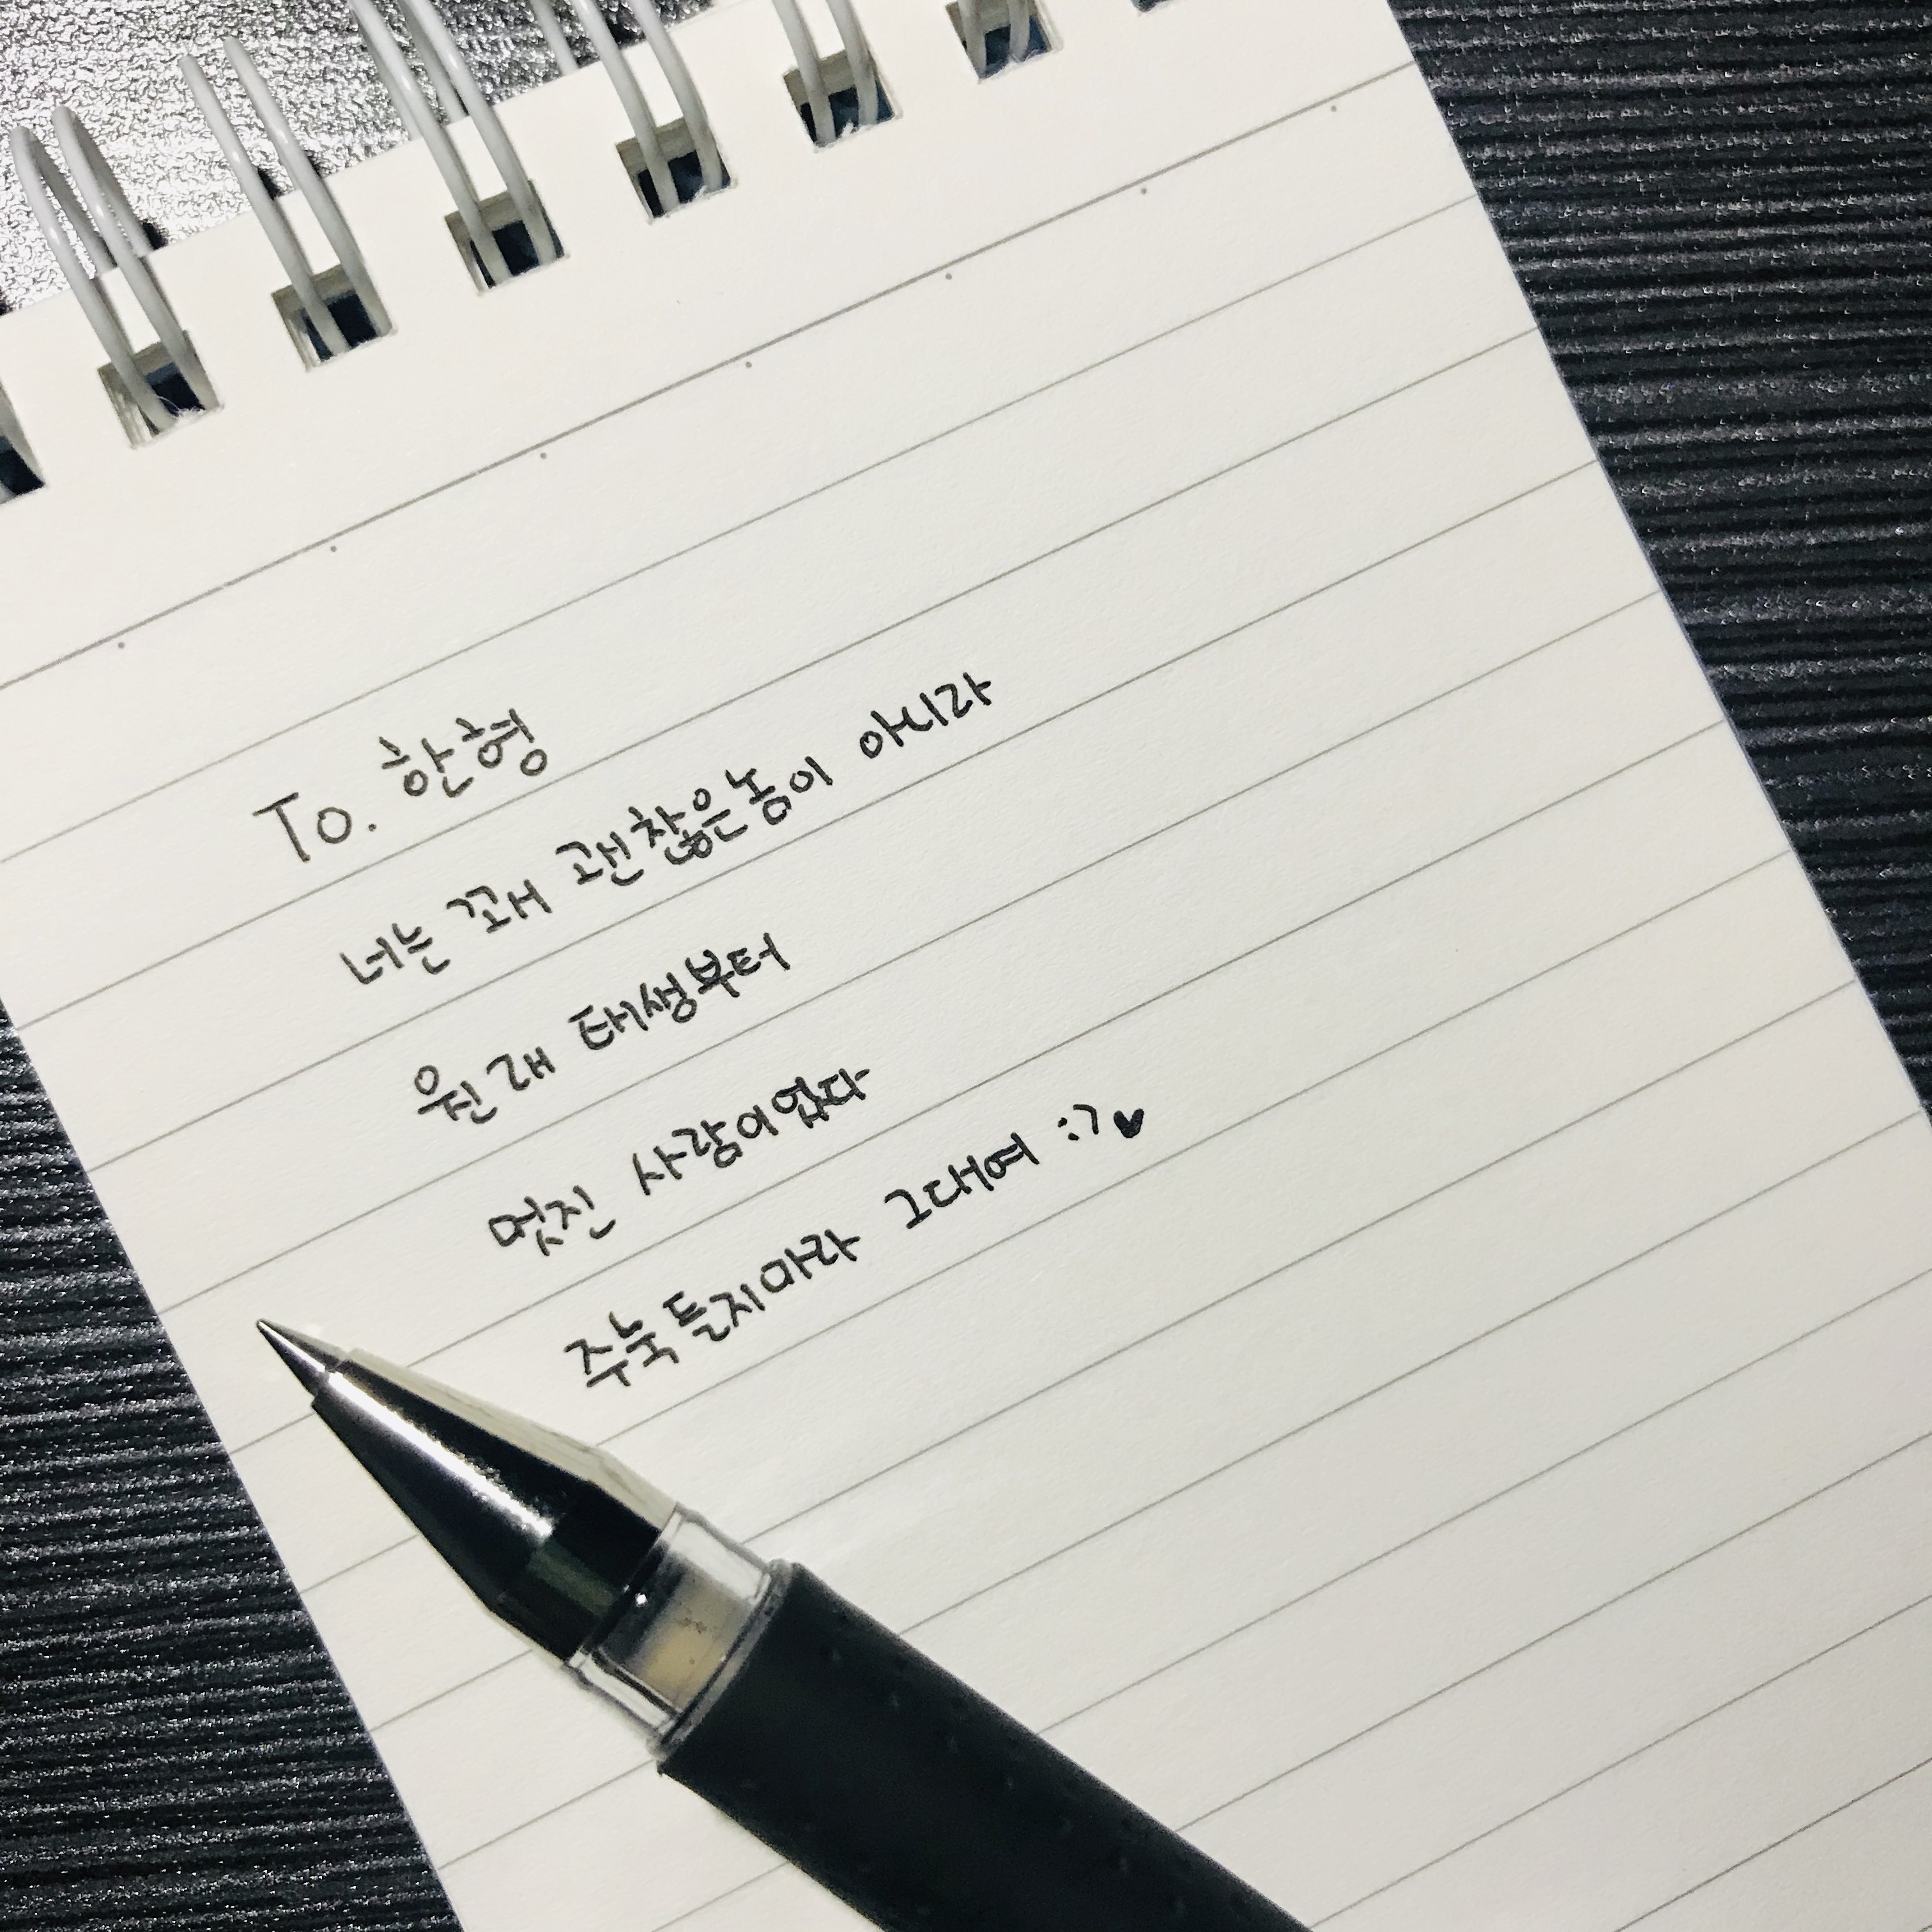 To. 한형
너는 꽤 괜찮은놈이 아니라
원래 태생부터
멋진 사람이였다
주눅들지마라 그대여 :7♥